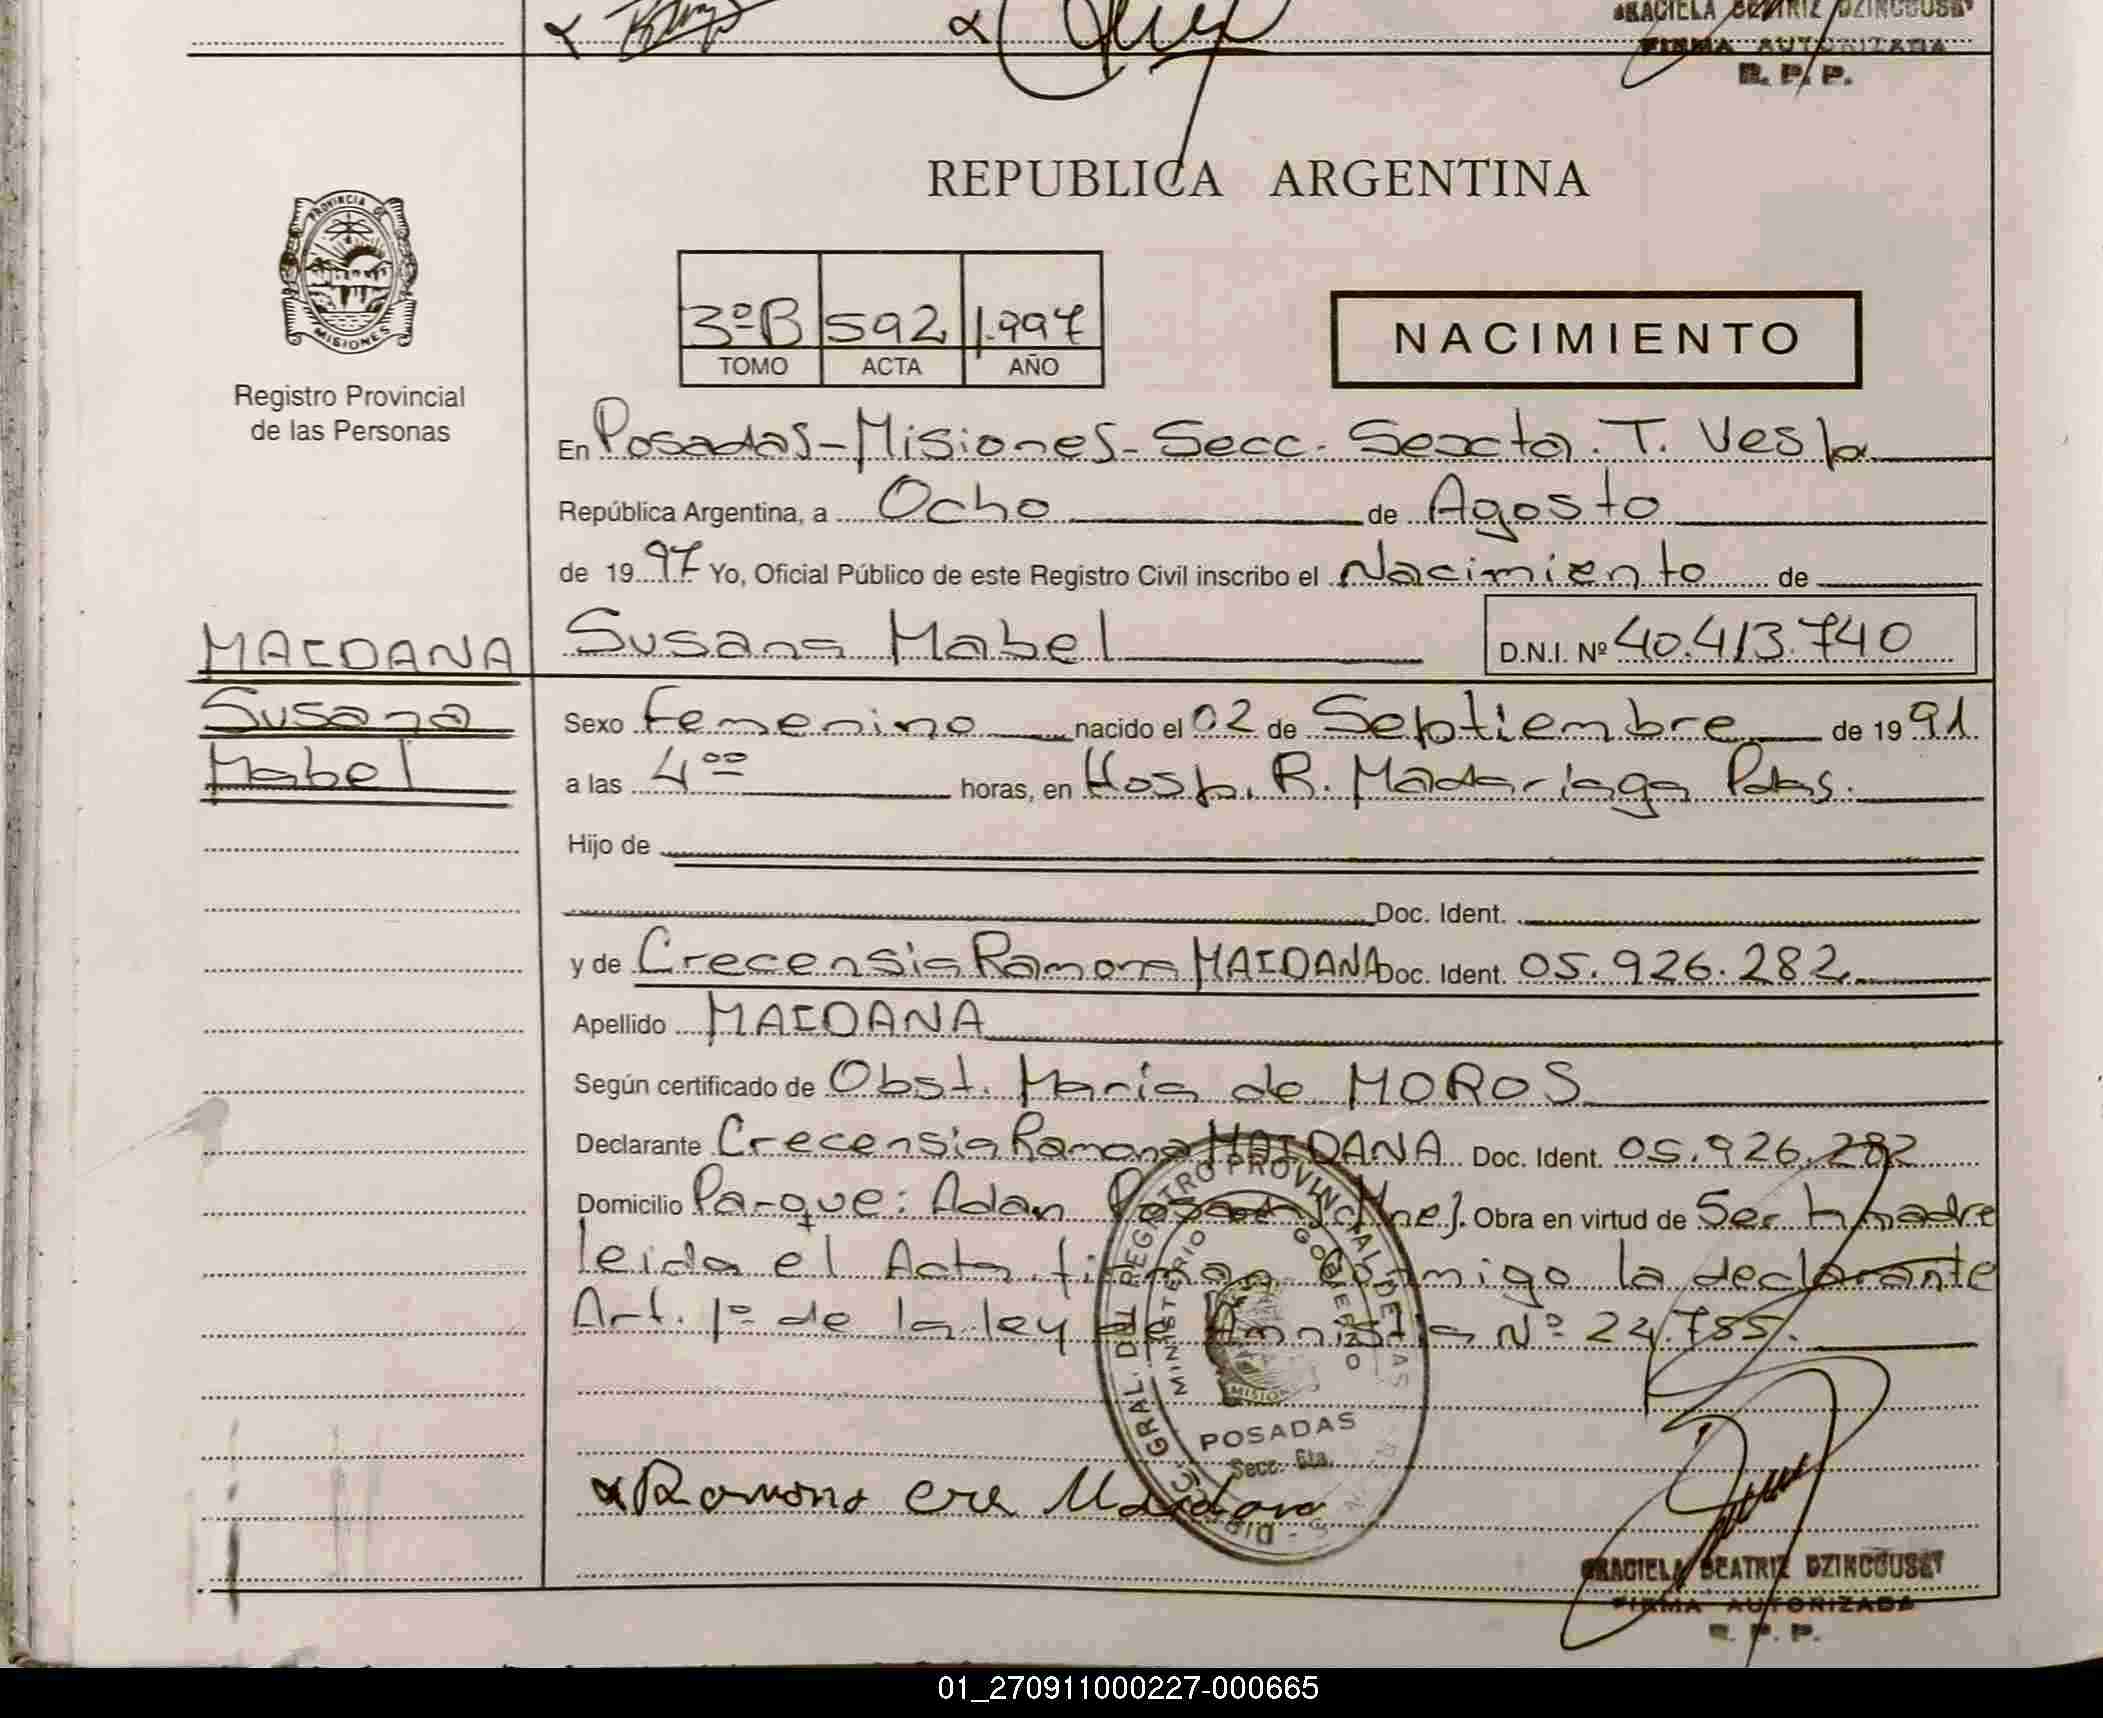 GRACIELA BEATRIZ DZINCOUSKY
FIRMA AUTORIZADA
R. P. P.
REPUBLICA ARGENTINA
PROVINCIA DE
MISIONES
Registro Provincial
de las Personas
3º B 592 1.997
TOMO ACTA AÑO
NACIMIENTO
En Posadas - Misiones - Secc. Sexta. T. Vesp
República Argentina, a Ocho de Agosto
de 1997 Yo, Oficial Público de este Registro Civil inscribo el Nacimiento de
MAIDANA
Susana
Mabel
Susana Mabel D.N.I. Nº 40.413.740
Sexo Femenino nacido el 02 de Septiembre de 1991
a las 4 00 horas, en Hosp. R. Madariaga Pdas.
Hijo de
Doc. Ident.
y de Crecensia Ramona MAIDANA Doc. Ident. 05.926.282
Apellido MAIDANA
Según certificado de Obst. Maria de MOROS
Declarante Crecensia Ramona MAIDANA Doc. Ident. 05.926.282
Domicilio Parque: Adan Posadas Mnes. Obra en virtud de Ser madre
leida el Acta firman conmigo la declarante
Art. 1º de la ley de Amnistia Nº 24.755.
DIRECC. GRAL. DEL REGISTRO PROVINCIAL DE LAS
MINISTERIO GOBIERNO
POSADAS
Secc. 6ta.
Ramona Maidana
GRACIELA BEATRIZ DZINCOUSKY
FIRMA AUTORIZADA
R. P. P.
01_270911000227-000665